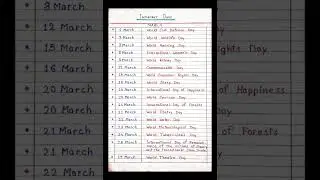 Important Days
MARCH
1 March World Civil Defence Day
3 March World Wildlife Day
3 March World Hearing Day
8 March International Women's Day
8 March World Kidney Day
March Commonwealth Day
15 March World Consumer Rights Day
March World Sleep Day
20 March International Day of Happiness
20 March World Sparrow Day
21 March International Day of Forests
21 March World Poetry Day
22 March World Water Day
23 March World Meteorological Day
24 March World Tuberculosis Day
25 March International Day of
of the Victims of Slavery
and the Slave Trade
27 March World Theatre Day
8 March
12 March
15 March
March
20 March
20 March
21 March
21 March
22 March
ights Day
of Happiness
of Forests